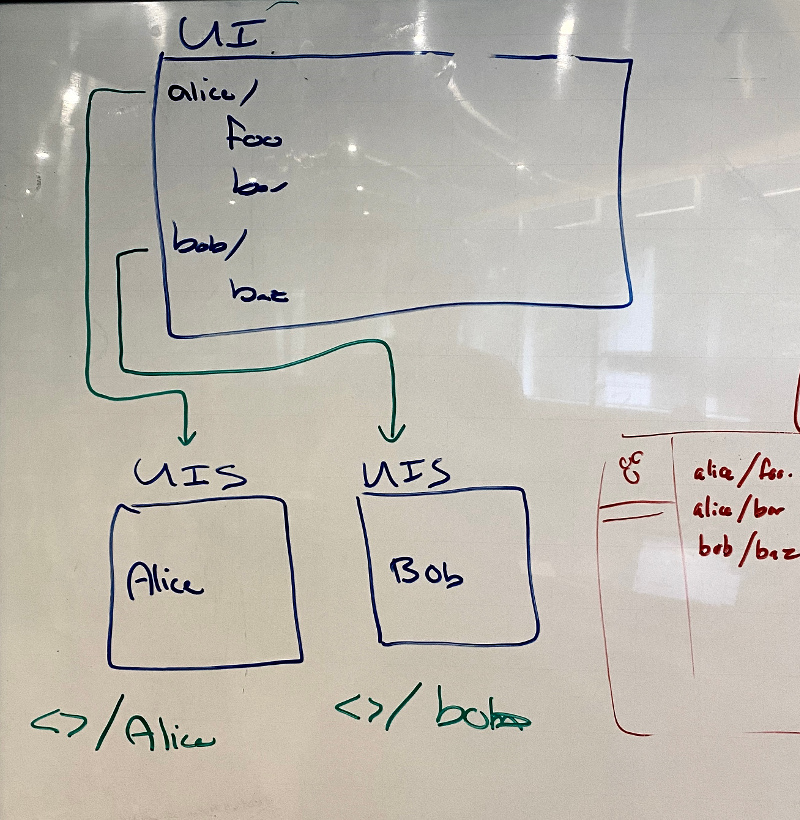 UI
alice/
foo
bar
bob/
baz
UIS
UIS
Alice
Bob
<>/Alice
<>/bob
alice/foo.
alice/bar
bob/baz